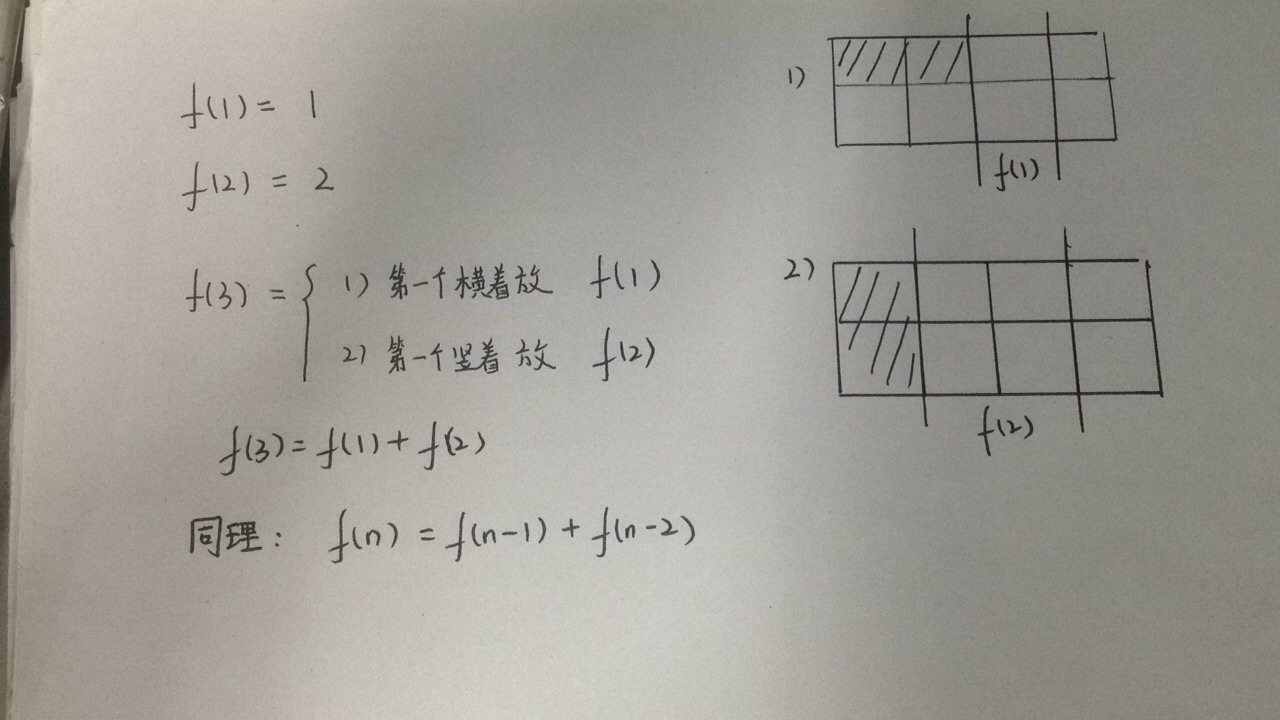 f(1) = 1
f(2) = 2
f(3) = { 1) 第一个横着放 f(1)
2) 第一个竖着放 f(2)
f(3) = f(1) + f(2)
同理: f(n) = f(n-1) + f(n-2)
1)
f(1)
2)
f(2)